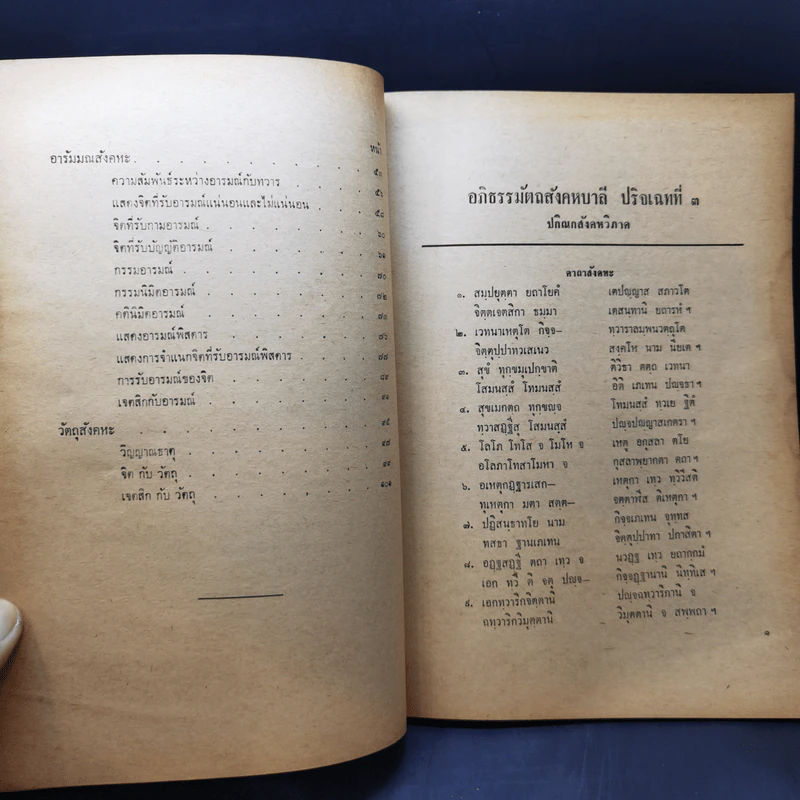 หน้า
อารัมมณสังคหะ . . . . . . . . . ๕๓
ความสัมพันธ์ระหว่างอารมณ์กับทวาร . . . . ๕๖
แสดงจิตที่รับอารมณ์แน่นอนและไม่แน่นอน . . . . ๕๘
จิตที่รับกามอารมณ์ . . . . . . . ๖๐
จิตที่รับบัญญัติอารมณ์ . . . . . . . ๖๑
กรรมอารมณ์ . . . . . . . . ๗๐
กรรมนิมิตอารมณ์ . . . . . . . ๗๒
คตินิมิตอารมณ์ . . . . . . .
แสดงอารมณ์พิสดาร . . . . . . . ๗๖
แสดงการจำแนกจิตที่รับอารมณ์พิสดาร . . . . ๗๘
การรับอารมณ์ของจิต . . . . . . ๘๙
เจตสิกกับอารมณ์ . . . . . . . ๙๑
วัตถุสังคหะ . . . . . . . . . ๙๕
วิญญาณธาตุ . . . . . . . . ๙๘
จิต กับ วัตถุ . . . . . . . . ๙๙
เจตสิก กับ วัตถุ . . . . . . . ๑๐๑
อภิธรรมัตถสังคหบาลี ปริจเฉทที่ ๓
ปกิณกสังคหวิภาค
คาถาสังคหะ
๑. สมฺปยุตฺตา ยถาโยคํ เตปญฺญาส สภาวโต
จิตฺตเจตสิกา ธมฺมา เตสนฺทานิ ยถารหํ ฯ
๒. เวทนาเหตุโต กิจฺจ– ทฺวาราลมฺพนวตฺถุโต
จิตฺตุปฺปาทวเสเนว สงฺคโห นาม นียเต ฯ
๓. สุขํ ทุกฺขมุเปกฺขาติ ติวิธา ตตฺถ เวทนา
โสมนสฺสํ โทมนสฺสํ อิติ เภเทน ปญฺจธา ฯ
๔. สุขเมกตฺถ ทุกฺขญฺจ โทมนสฺสํ ทฺวเย ฐิตํ
ทฺวาสฏฺฐีสุ โสมนสฺสํ ปญฺจปญฺญาสเกตรา ฯ
๕. โลโภ โทโส จ โมโห จ เหตู อกุสลา ตโย
อโลภาโทสาโมหา จ กุสลาพฺยากตา ตถา ฯ
๖. อเหตุกฏฺฐารเสก– เหตุกา เทฺว ทฺวีวีสติ
ทุเหตุกา มตา สตฺต– จตฺตาฬีส ติเหตุกา ฯ
๗. ปฏิสนฺธาทโย นาม กิจฺจเภเทน จุทฺทส
ทสธา ฐานเภเทน จิตฺตุปฺปาทา ปกาสิตา ฯ
๘. อฏฺฐสฏฺฐี ตถา เทฺว จ นวฏฺฐ เทฺว ยถากฺกมํ
เอก ทฺวิ ติ จตุ ปญฺจ– กิจฺจฏฺฐานานิ นิทฺทิเส ฯ
๙. เอกทฺวาริกจิตฺตานิ ปญฺจฉทฺวาริกานิ จ
ฉทฺวาริกวิมุตฺตานิ วิมุตฺตานิ จ สพฺพถา ฯ
๑